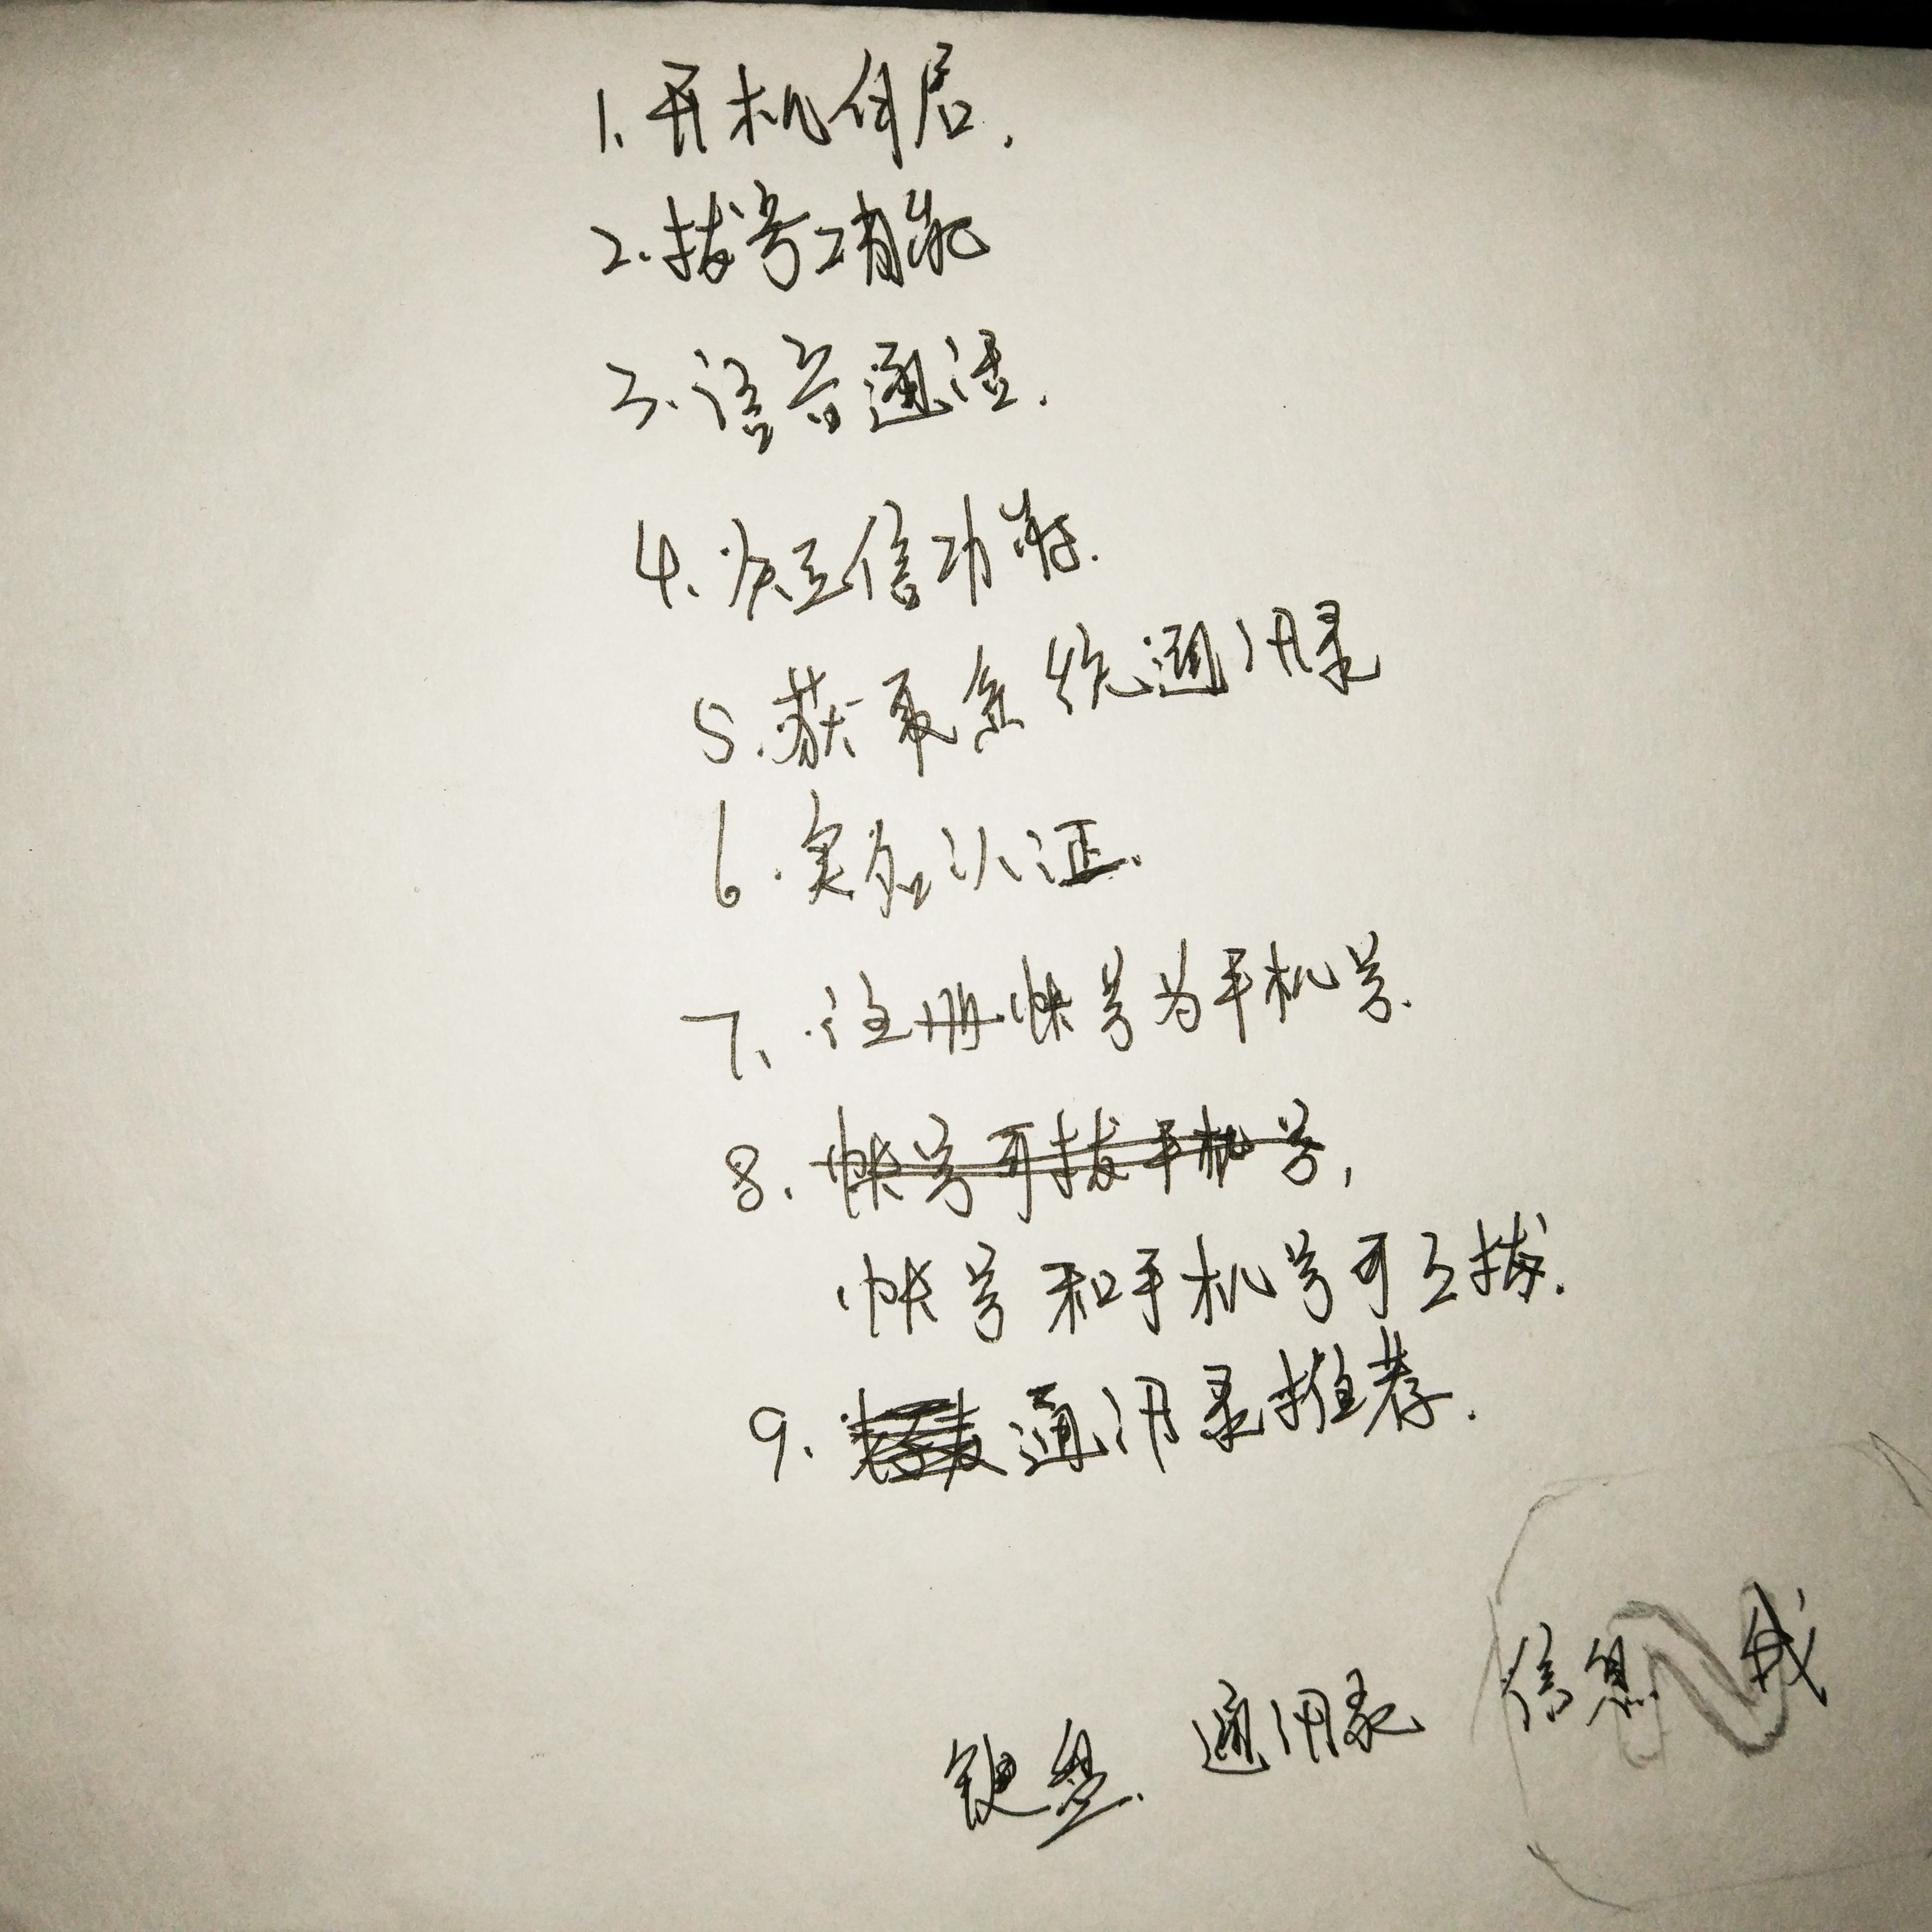 1. 开机自启.
2. 拨号功能
3. 语音通话.
4. 发短信功能.
5. 获取系统通讯录
6. 实名认证.
7. 注册帐号为手机号.
8. 帐号可拨手机号,
帐号和手机号可互拨.
9. 通讯录推荐.
键盘. 通讯录 信息 我